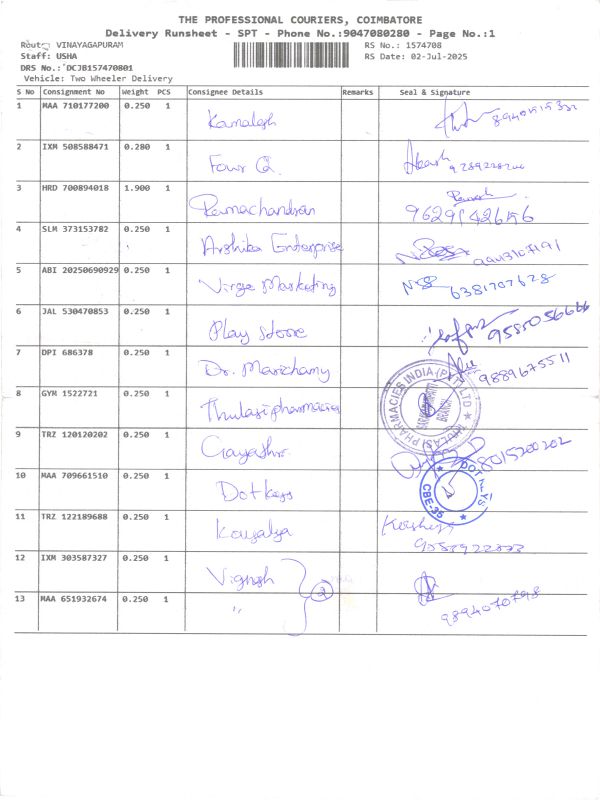 THE PROFESSIONAL COURIERS, COIMBATORE
Delivery Runsheet - SPT - Phone No.:9047080280 - Page No.:1
Route: VINAYAGAPURAM
RS No.: 1574708
Staff: USHA
RS Date: 02-Jul-2025
DRS No.: DCJB157470801
Vehicle: Two Wheeler Delivery
S No Consignment No Weight PCS Consignee Details Remarks Seal & Signature
1 MAA 710177200 0.250 1 Kamalesh
2 IXM 508588471 0.280 1 Four Q. Akash
3 HRD 700894018 1.900 1 Ramachandran Ramesh
4 SLM 373153782 0.250 1 Arshika Enterprise
5 ABI 20250690929 0.250 1 Marketing 6381707628
6 JAL 530470853 0.250 1 Play store
7 DPI 686378 0.250 1 Dr. Marichamy 9889675511
8 GYM 1522721 0.250 1 Thulasi pharmacies THULASI PHARMACIES INDIA (P) LTD
9 TRZ 120120202 0.250 1 Gayathri 8015200202
10 MAA 709661510 0.250 1 Dot keys DOT KEYS CBE-35
11 TRZ 122189688 0.250 1 Kousalya
12 IXM 303587327 0.250 1 Vignesh 2
13 MAA 651932674 0.250 1 " 9894070798